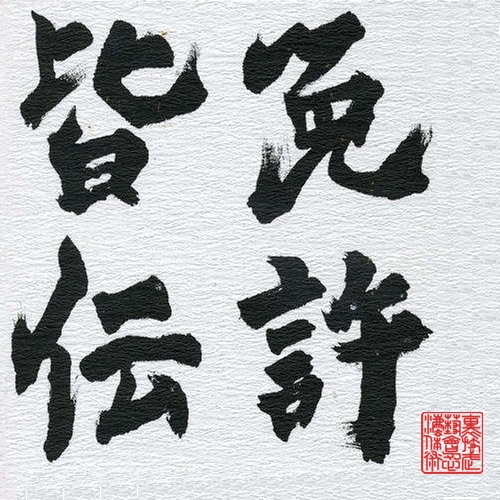 免許
皆伝